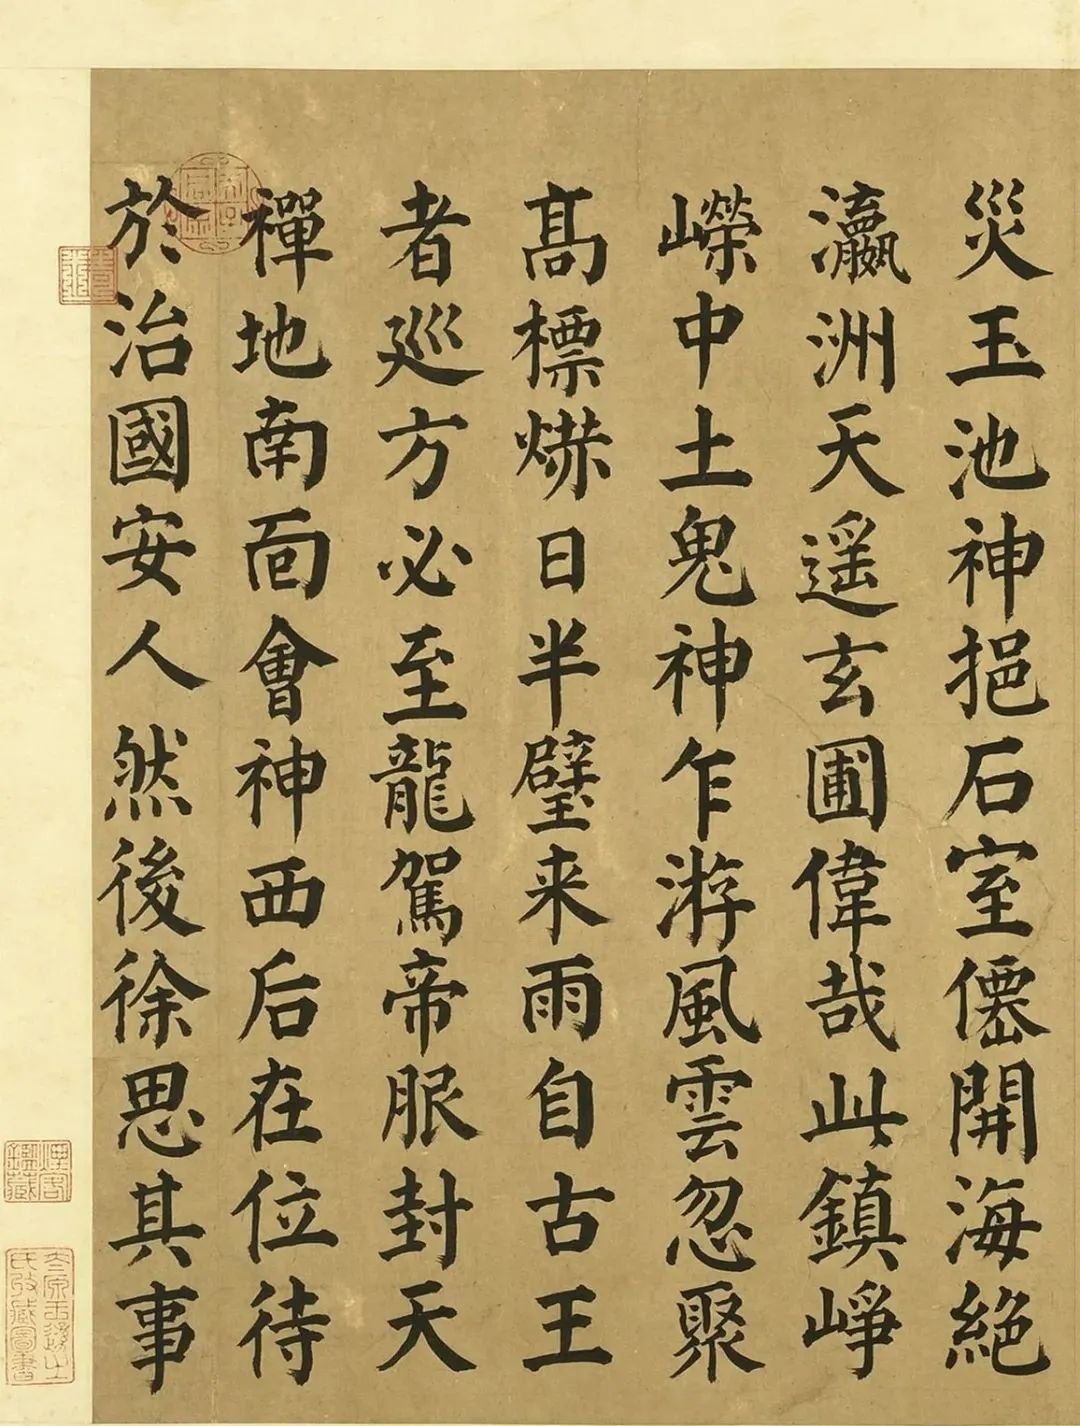 災玉池神挹石室僊開海絕
瀛洲天遥玄圃偉哉此鎮崢
嶸中土鬼神乍游風雲忽聚
髙標爀日半壁来雨自古王
者巡方必至龍駕帝服封天
禪地南面會神西后在位待
於治國安人然後徐思其事